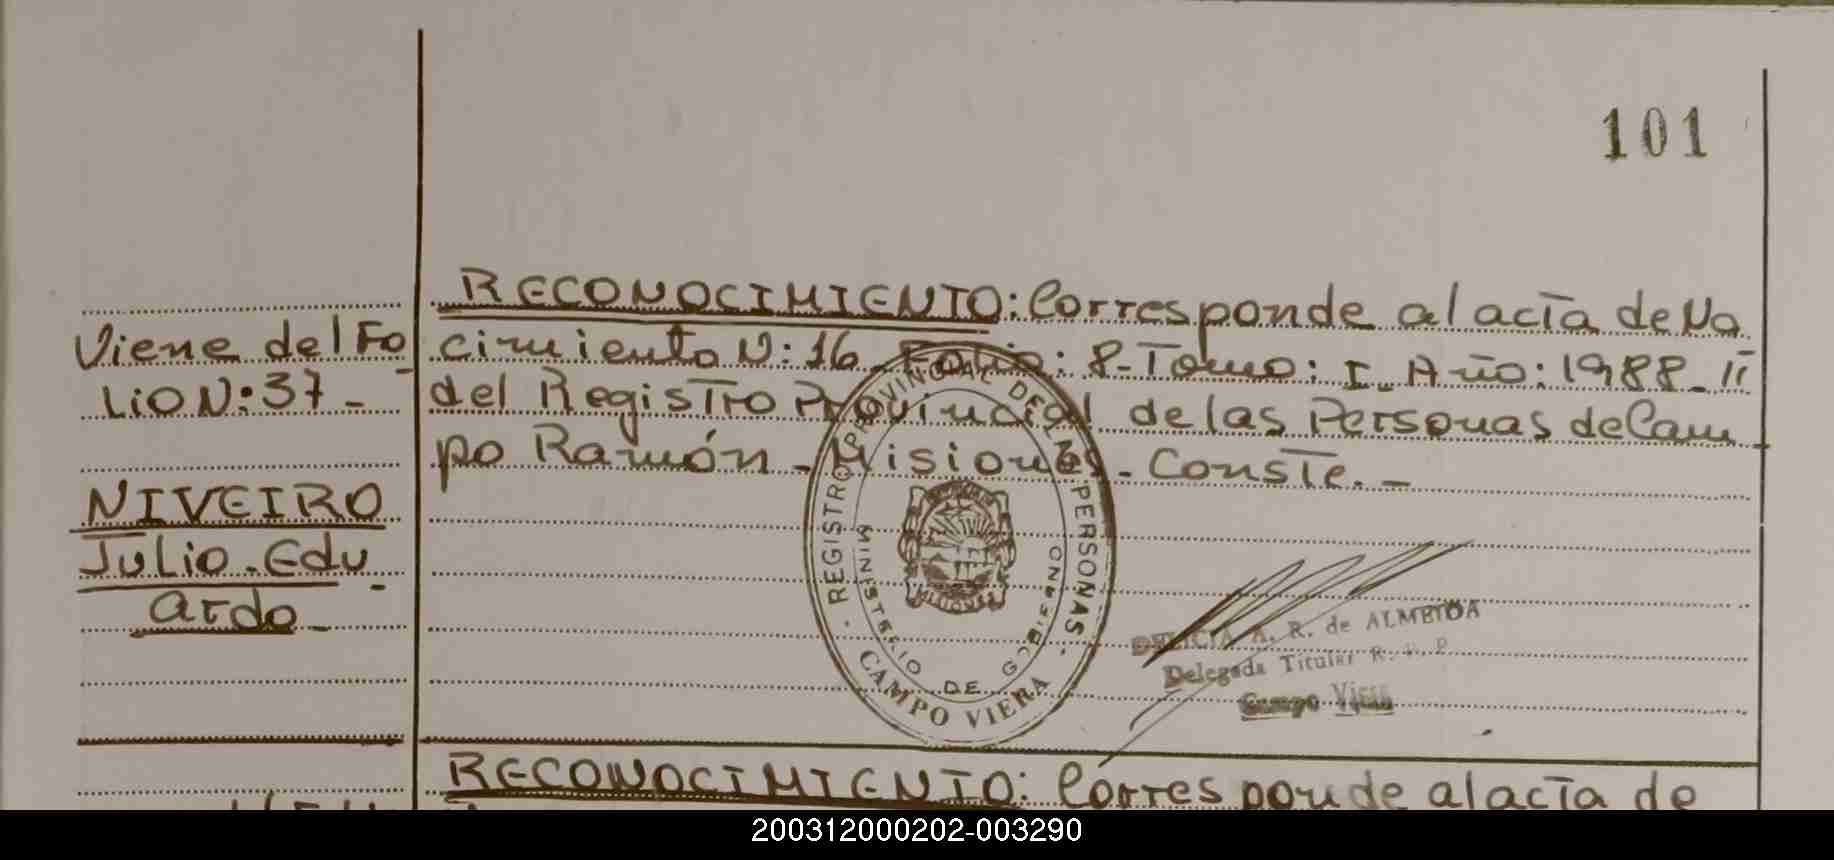 101
Viene del Fo
Lio N: 37 -
NIVEIRO
Julio. Edu
ardo -
RECONOCIMIENTO: Corresponde al acta de Na
cimiento N: 16 - Folio: 8 - Tomo: I - Año: 1988 - II
del Registro Provincial de las Personas de Cam
po Ramón - Misiones - Conste. -
· REGISTRO PROVINCIAL DE LAS PERSONAS ·
MINISTERIO DE GOBIERNO
MISIONES
CAMPO VIERA
DELICIA A. R. de ALMEIDA
Delegada Titular R. P. P
Campo Viera
RECONOCIMIENTO: Corresponde al acta de
200312000202-003290